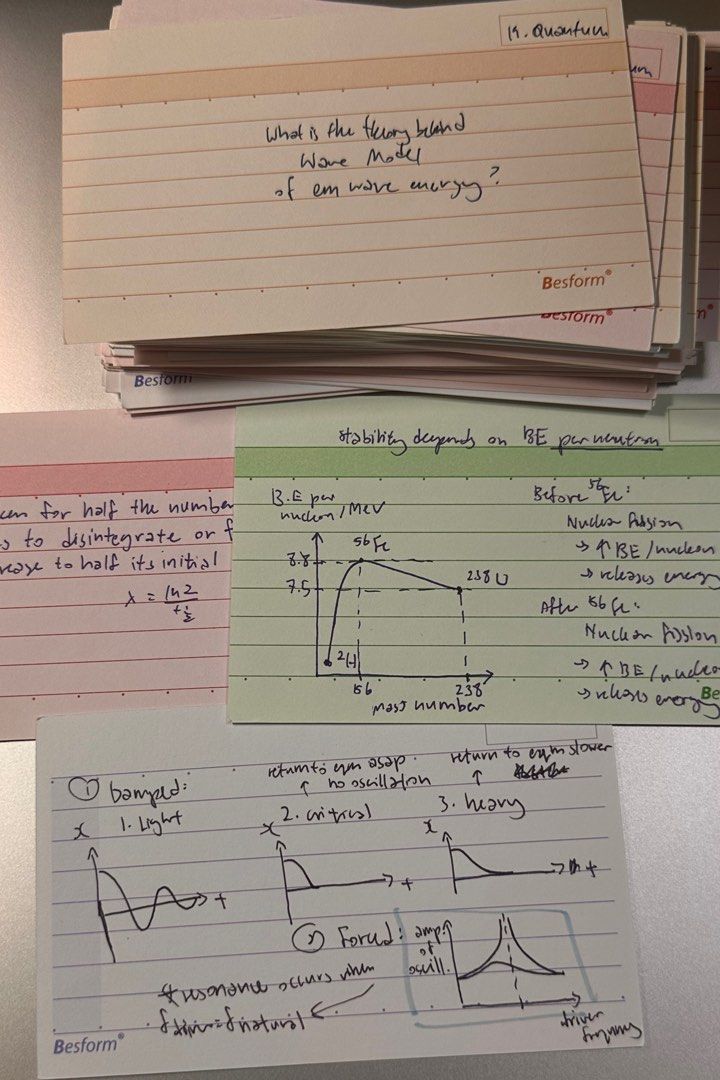 19. Quantum
um
What is the theory behind
Wave Model
of em wave energy?
Besform®
Besform®
Besform
stability depends on BE per neutron
for half the number
to disintegrate or f
to half its initial
λ = ln2
t½
B.E per
nucleon / MeV
56 Fe
8.8
7.5
238 U
2H
56
238
mass number
Before 56Fe:
Nuclear fusion
→ ↑ BE/nucleon
→ releases energy
After 56 Fe:
Nuclear fission
→ ↑ BE/nucleon
→ releases energy
Be
① Damped:
1. Light
x
t
return to eqm asap
↑ no oscillation
2. critical
x
t
return to eqm slower
↑
3. heavy
x
t
② Forced:
amp.
of
oscill.
driver
frequency
resonance occurs when
fdriver = fnatural
Besform®